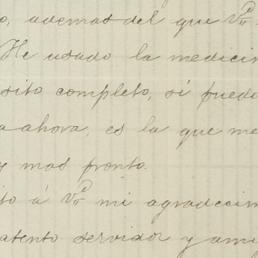 o, ademas del que V.
He usado la medicin
sito completo, si puedi
a ahora, es la que me
y mas pronto.
ito á V. mi agradecim
atento servidor y ami